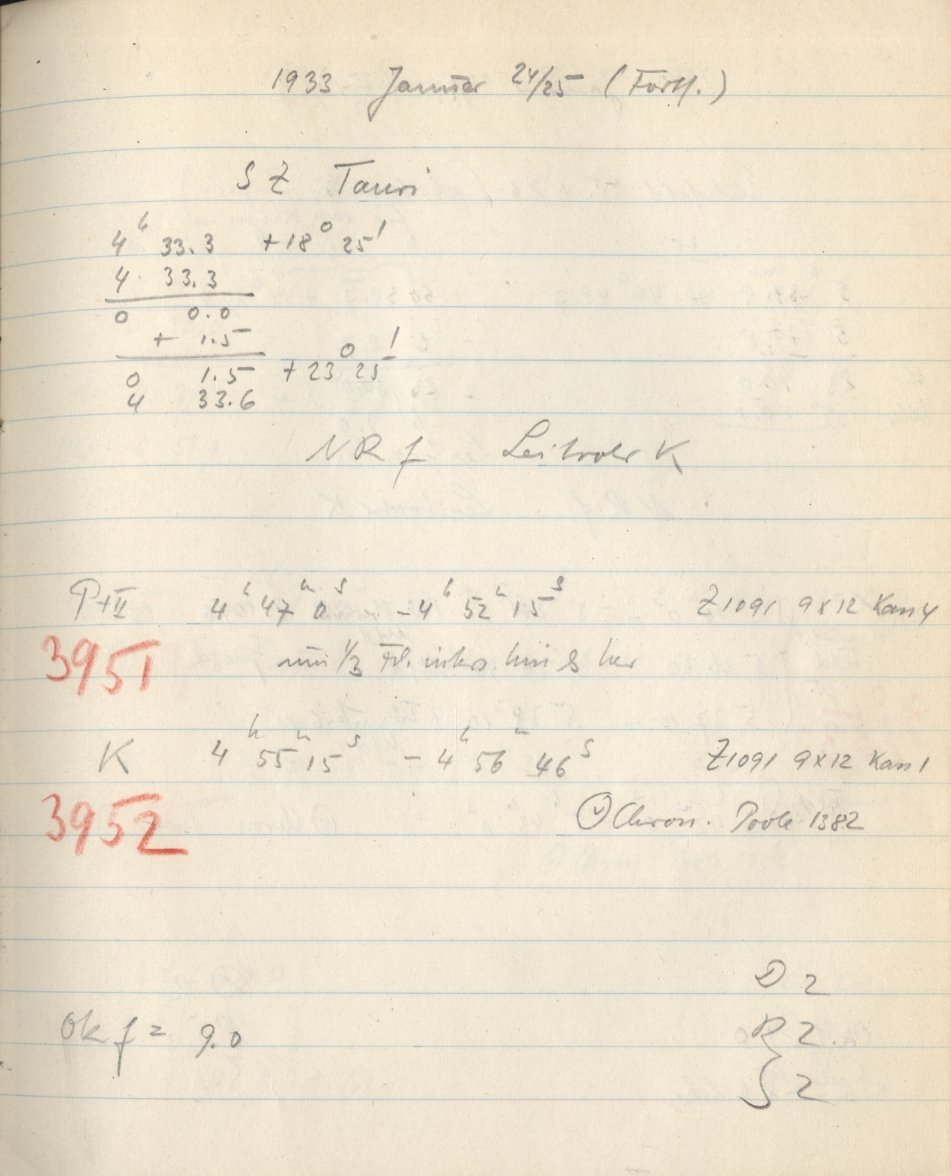 1933 Januar 24/25 (Forts.)
SZ Tauri
4ʰ 33.3 +18° 25'
4 33.3
0 0.0
+ 1.5
0 1.5 +23° 25'
4 33.6
NR f Leitrohr K
4ʰ 47ᵐ 0ˢ – 4ʰ 52ᵐ 15ˢ Z1091 9x12 Kass 4
3951
um 1/3 hin & her
K 4ʰ 55ᵐ 15ˢ – 4ʰ 56ᵐ 46ˢ Z1091 9x12 Kass 1
3952
Chron. Poole 1382
D 2
Ok f = 9.0 R 2.
S 2